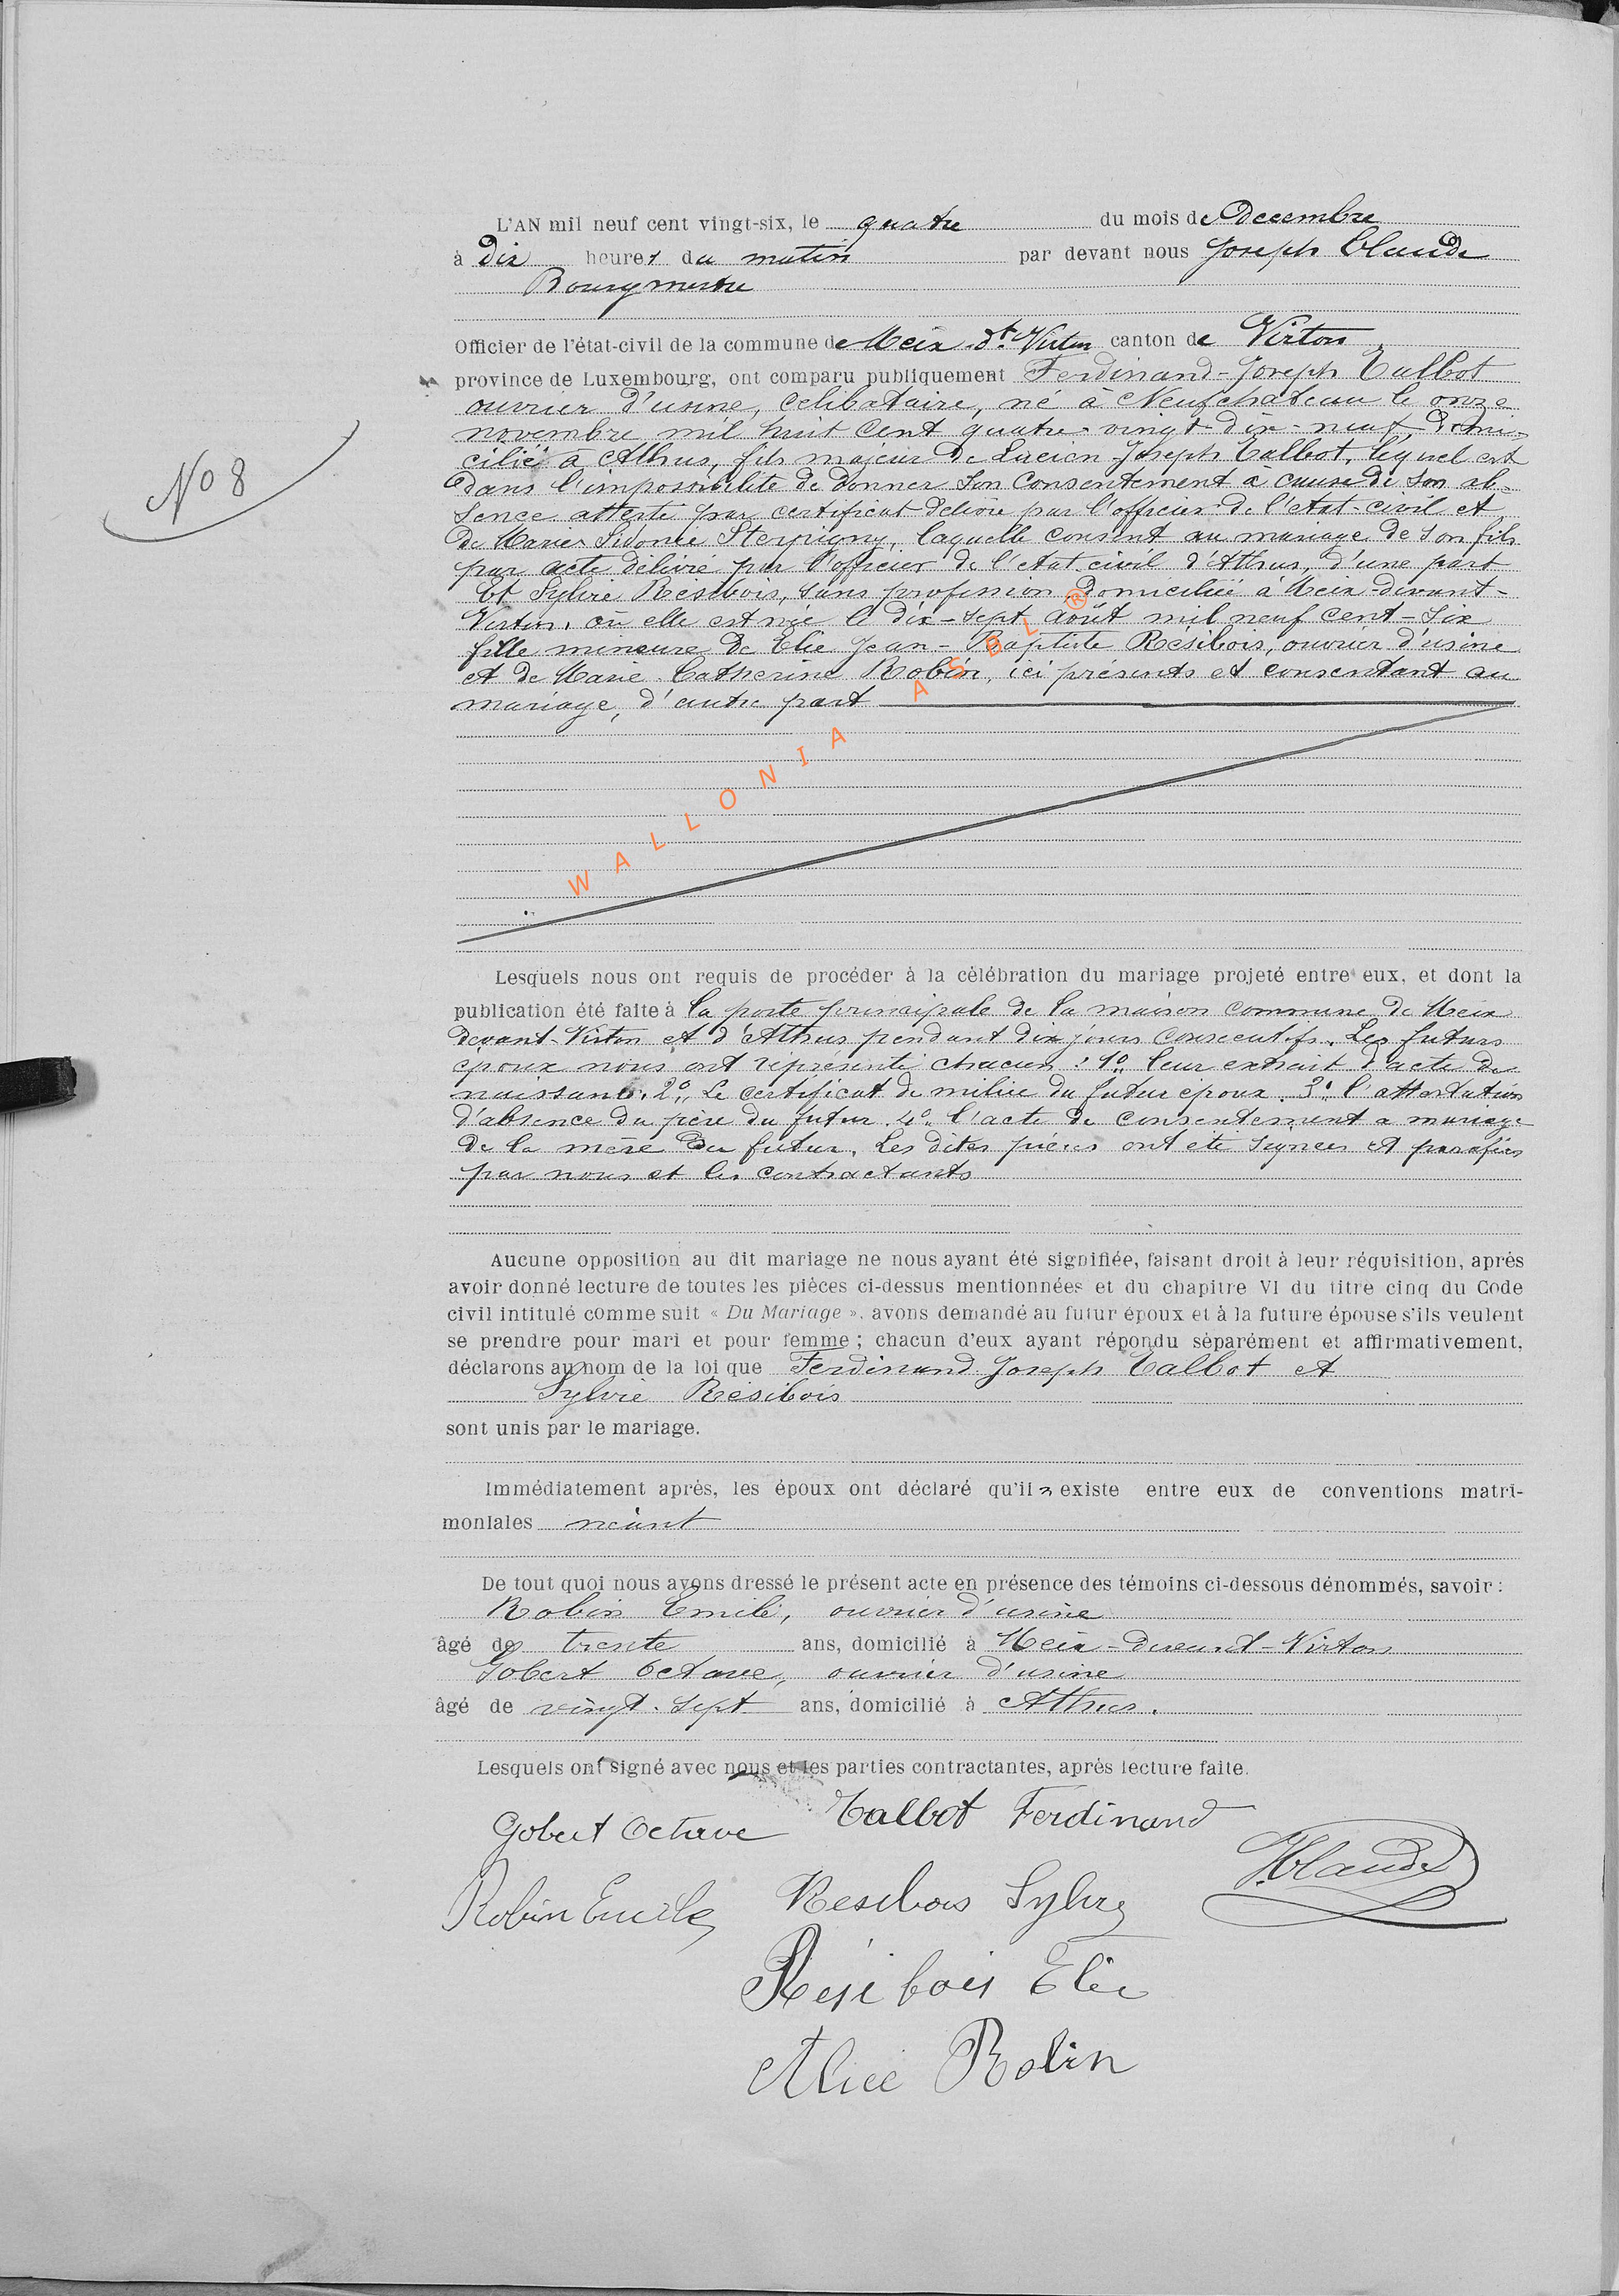 L'AN mil neuf cent vingt-six, le quatre du mois de Decembre
à Dix heures du matin par devant nous Joseph Claude
Bourgmestre
Officier de l'état-civil de la commune de Meix-dt-Virton canton de Virton
province de Luxembourg, ont comparu publiquement Ferdinand-Joseph Talbot
ouvrier d'usine, celibataire, né à Neufchateau le onze
novembre mil huit cent quatre-vingt-dix-neuf, domi-
cilié à Athus, fils majeur de Lucien-Joseph Talbot, lequel est
dans l'impossibilité de donner son consentement à cause de son ab-
sence attesté par certificat délivré par l'officier de l'état-civil et
de Marie Sidonie Sterpigny, laquelle consent au mariage de son fils
par acte délivré par l'officier de l'état civil d'Athus, d'une part
Et Sylvie Résibois, sans profession, Domiciliée à Meix-devant-
Virton, où elle est née le dix-sept août mil neuf cent-six
fille mineure de Elie Jean-Baptiste Résibois, ouvrier d'usine
et de Marie Catherine Robin, ici présents et consentant au
mariage, d'autre part
WALLONIA ASBL ®
No 8
Lesquels nous ont requis de procéder à la célébration du mariage projeté entre eux, et dont la
publication été faite à la porte principale de la maison commune de Meix
devant-Virton et d'Athus pendant dix jours consecutifs. Les futurs
époux nous ont représenté chacun : 1o leur extrait d'acte de
naissance. 2o Le certificat de milice du futur époux. 3o l'attestation
d'absence du père du futur. 4o l'acte de consentement a mariage
de la mère du futur. Les dites pièces ont été signées et parafées
par nous et les contractants
Aucune opposition au dit mariage ne nous ayant été signifiée, faisant droit à leur réquisition, après
avoir donné lecture de toutes les pièces ci-dessus mentionnées et du chapitre VI du titre cinq du Code
civil intitulé comme suit « Du Mariage », avons demandé au futur époux et à la future épouse s'ils veulent
se prendre pour mari et pour femme ; chacun d'eux ayant répondu séparément et affirmativement,
déclarons au nom de la loi que Ferdinand Joseph Talbot et
Sylvie Résibois
sont unis par le mariage.
Immédiatement après, les époux ont déclaré qu'il n existe entre eux de conventions matri-
moniales néant
De tout quoi nous avons dressé le présent acte en présence des témoins ci-dessous dénommés, savoir :
Robin Emile, ouvrier d'usine
âgé de trente ans, domicilié à Meix-devant-Virton
Gobert Octave, ouvrier d'usine
âgé de vingt-sept ans, domicilié à Athus.
Lesquels ont signé avec nous et les parties contractantes, après lecture faite.
Gobert Octave Talbot Ferdinand
J. Claude
Robin Emile Resibois Sylvie
Résibois Elie
Alice Robin